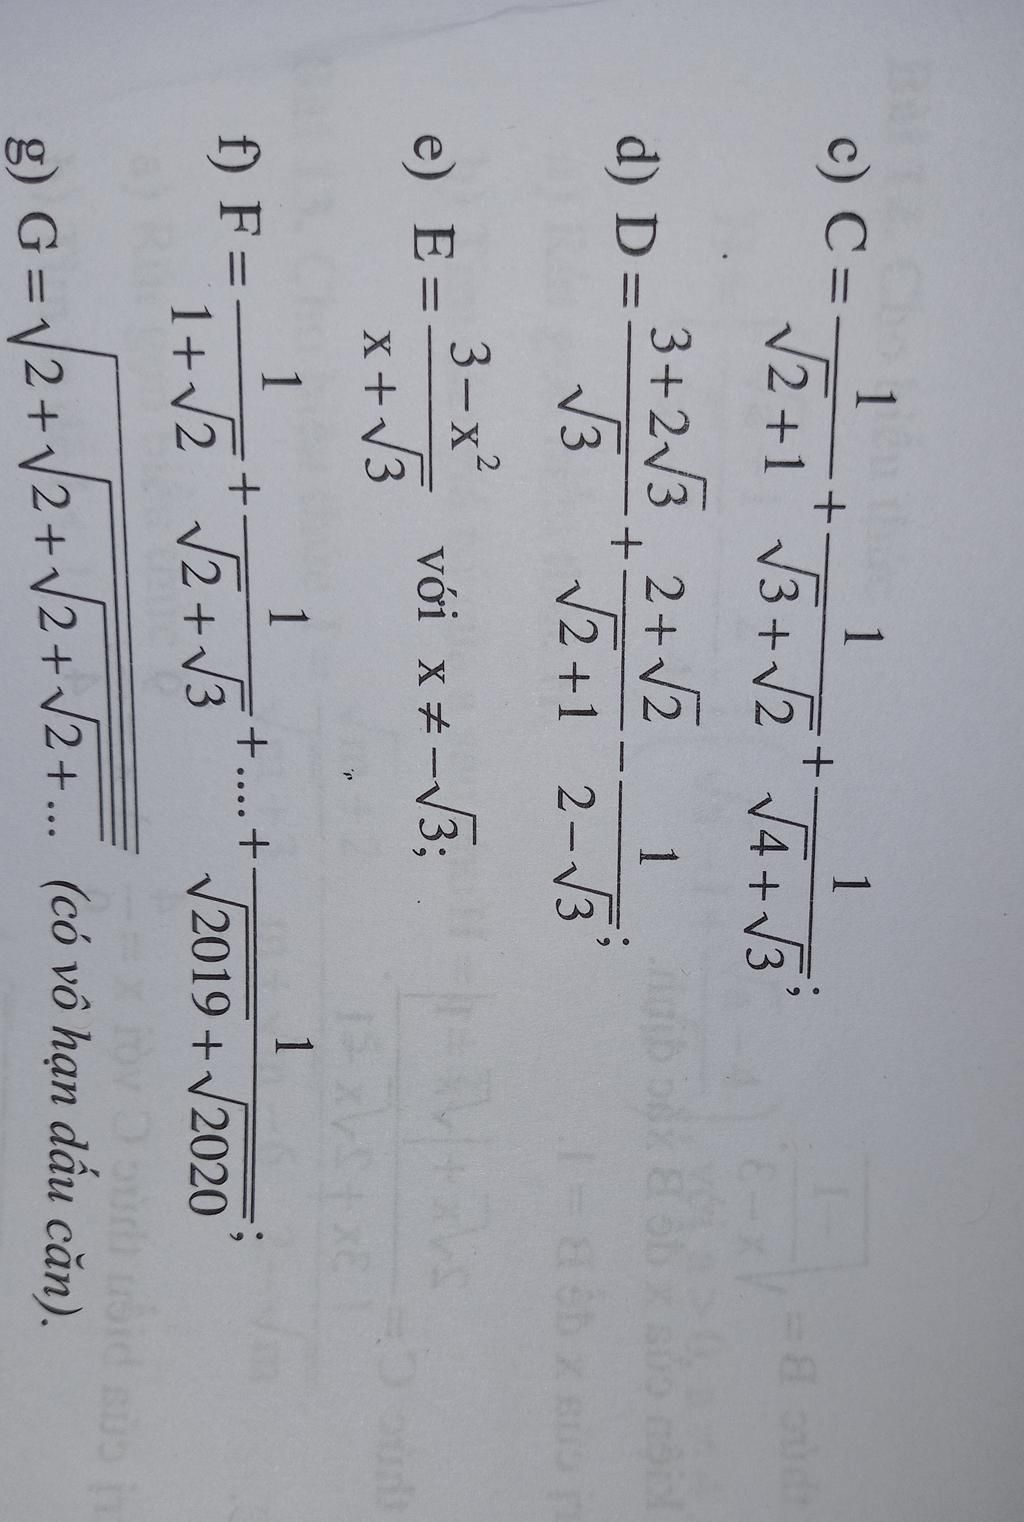 c) C = \frac{1}{\sqrt{2}+1} + \frac{1}{\sqrt{3}+\sqrt{2}} + \frac{1}{\sqrt{4}+\sqrt{3}};
d) D = \frac{3+2\sqrt{3}}{\sqrt{3}} + \frac{2+\sqrt{2}}{\sqrt{2}+1} - \frac{1}{2-\sqrt{3}};
e) E = \frac{3-x^2}{x+\sqrt{3}} với x ≠ -\sqrt{3};
f) F = \frac{1}{1+\sqrt{2}} + \frac{1}{\sqrt{2}+\sqrt{3}} + .... + \frac{1}{\sqrt{2019}+\sqrt{2020}};
g) G = \sqrt{2+\sqrt{2+\sqrt{2+\sqrt{2+...}}}} (có vô hạn dấu căn).